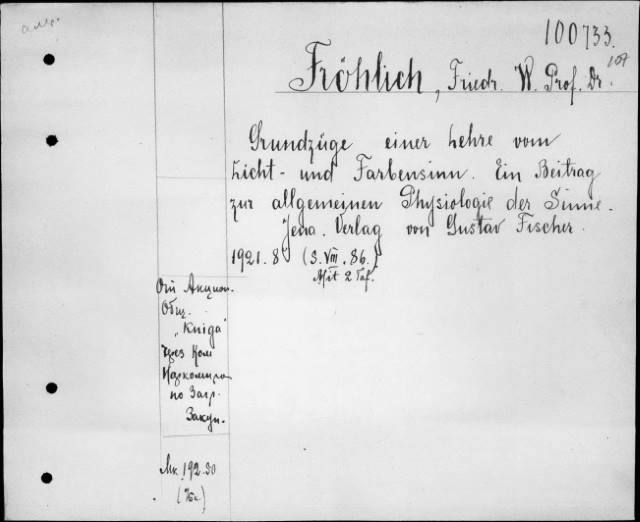 100733.
Fröhlich, Friedr. W. Prof. Dr.
Grundzüge einer Lehre vom
Licht- und Farbensinn. Ein Beitrag
zur allgemeinen Physiologie der Sinne.
Jena. Verlag von Gustav Fischer.
1921. 8° (S. VIII. 86.)
Mit 2 Taf.
От Акцион.
Общ.
"Kniga"
через Ком
Наркомира
по Загр.
Закуп.
Mk. 192.30